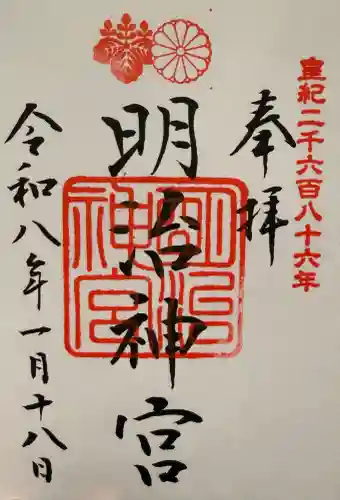 皇紀二千六百八十六年
奉拝
明治神宮
明治神宮
令和八年一月十八日